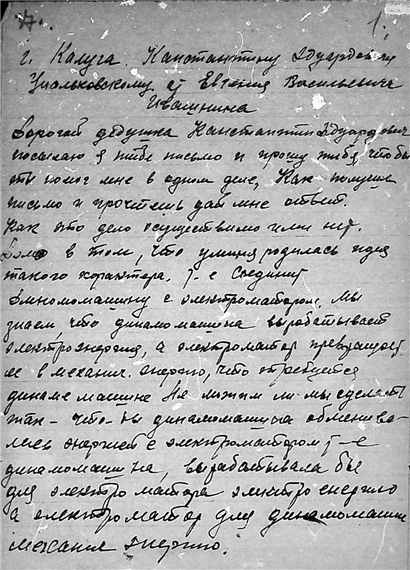 1.
г. Калуга. Канстантину Эдуардовичу
Циалковскому от Евгения Васильевича
Ивашнина
Дорогой дедушка Канстантин Эдуардович
посылаю я тибе письмо и прошу тибя, чтобы
ты помог мне в одном деле, Как получиш
письмо и прочтешь дай мне ответ.
Как это дело осуществимо или нет.
Дело в том, что у миня родилась идея
такого характера. т-е Соединит
динномомашину с электроматором. Мы
знаем, что динамомашина вырабатывает
электроэнергия, а электроматор превращает
ее в механич. энергию, что и требуется
динамо машине Не можим ли мы сделать
так - что-бы динамомашина обменива-
лась энергией с электроматором т-е
динамомашина, вырабатывала бы
для электро матора электро енергию
а електроматор для динамомашин
механич энергию.